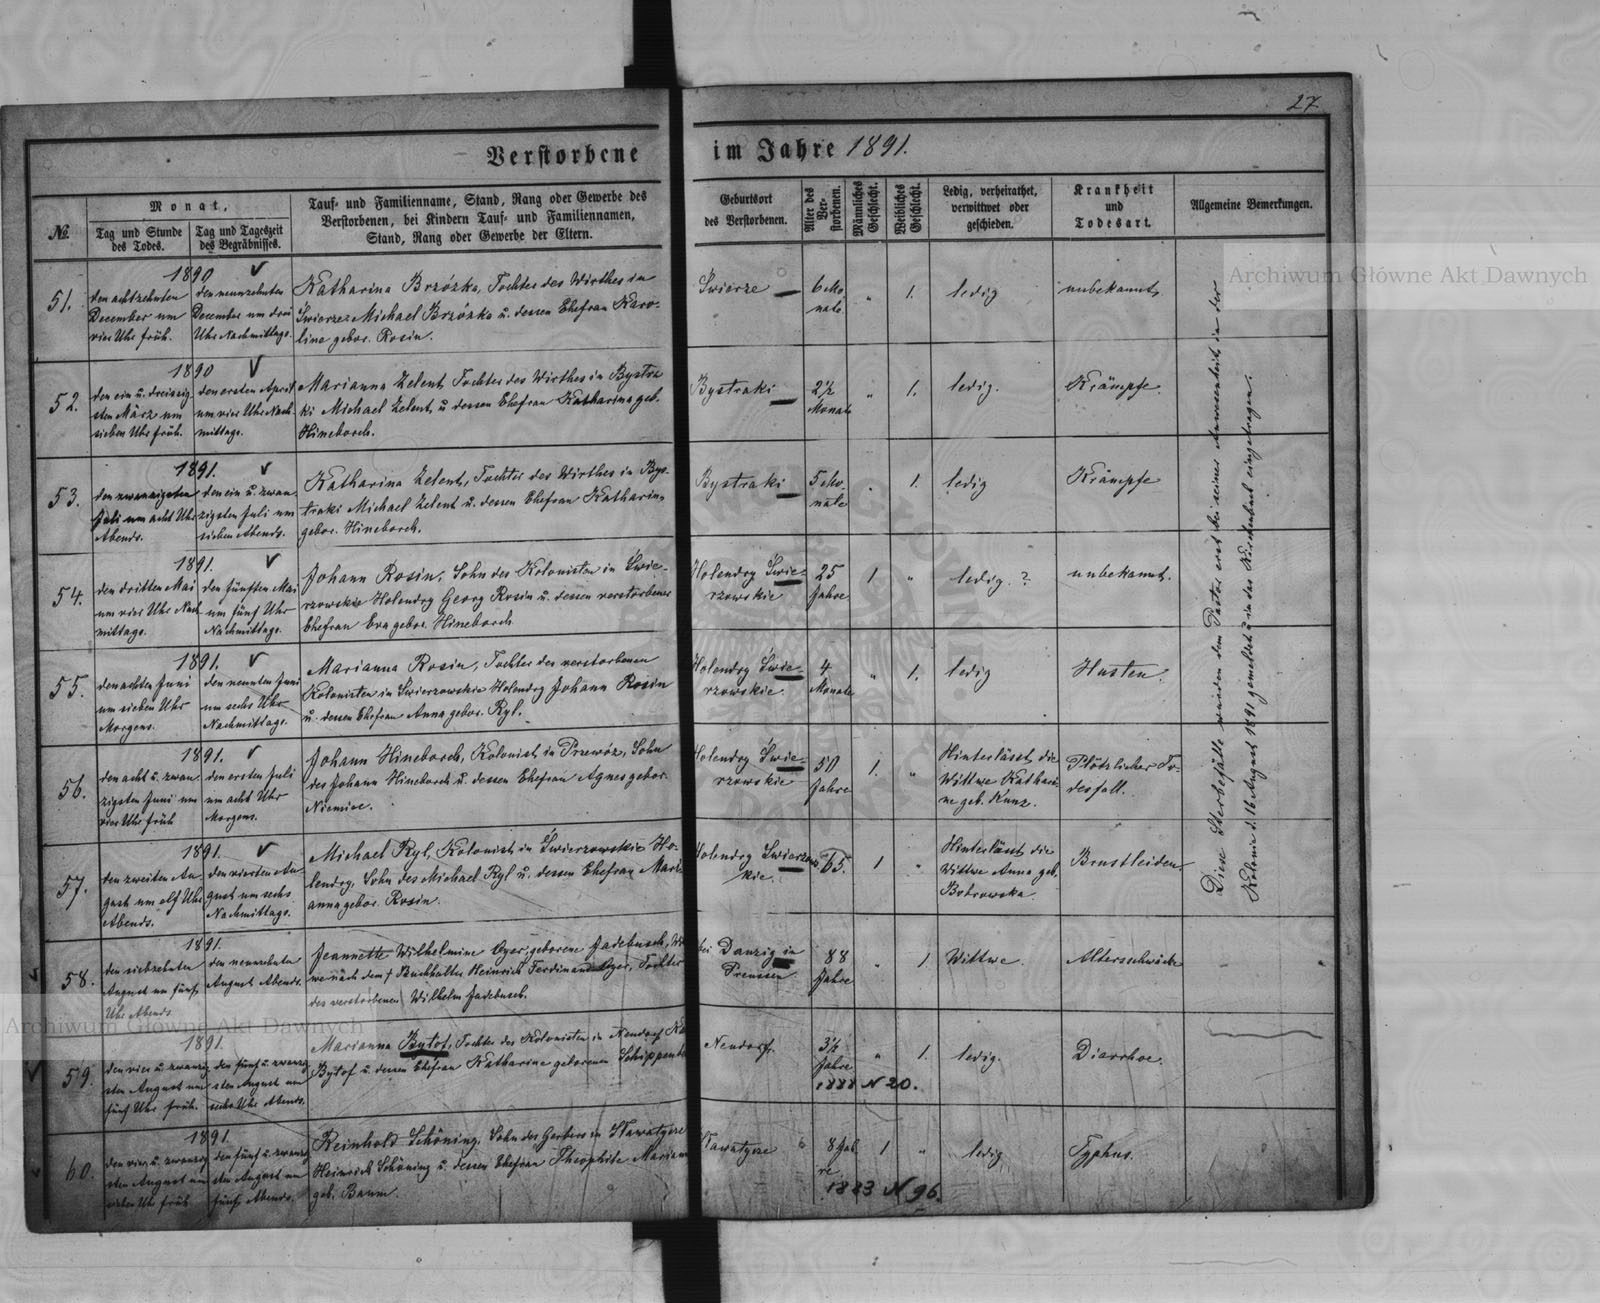 27
Verstorbene im Jahre 1891.
№
Monat,
Tag und Stunde des Todes.
Tag und Tageszeit des Begräbnisses.
Tauf- und Familienname, Stand, Rang oder Gewerbe des
Verstorbenen, bei Kindern Tauf- und Familiennamen,
Stand, Rang oder Gewerbe der Eltern.
Geburtsort
des Verstorbenen.
Alter des Verstorbenen.
Männliches Geschlecht.
Weibliches Geschlecht.
Ledig, verheirathet,
verwittwet oder
geschieden.
Krankheit
und
Todesart.
Allgemeine Bemerkungen.
51.
1890
den achtzehnten
December um
vier Uhr früh.
den neunzehnten
December um drei
Uhr Nachmittags.
Katharina Brzózka, Tochter des Wirthes in
Świerze Michael Brzózka u. dessen Ehefrau Karo-
line gebor. Rosin.
Świerze
6 Mo
nate
"
1.
ledig
unbekannt.
52.
1890
den ein u. dreissig
sten März um
sieben Uhr früh.
den ersten April
um vier Uhr Nach
mittags.
Marianna Zelent, Tochter des Wirthes in Bystra
ki Michael Zelent u. dessen Ehefrau Katharina geb.
Hineborch.
Bystraki
2½
Monate
"
1.
ledig.
Krämpfe
53.
1891.
den zwanzigsten
Juli um acht Uhr
Abends.
den ein u. zwan
zigsten Juli um
sieben Abends.
Katharina Zelent, Tochter des Wirthes in Bys-
traki Michael Zelent u. dessen Ehefrau Katharina
gebor. Hineborch.
Bystraki
5 Mo-
nate
"
1.
ledig
Krämpfe
54.
1891.
den dritten Mai
um vier Uhr Nach
mittags.
den fünften Mai
um fünf Uhr
Nachmittags.
Johann Rosin, Sohn des Kolonisten in Świe-
rzowskie Holendry Georg Rosin u. dessen verstorbenen
Ehefrau Eva gebor. Hineborch
Holendry Świe-
rzowskie
25
Jahre
1
"
ledig. ?
unbekannt.
55.
1891.
den achten Juni
um sieben Uhr
Morgens.
den neunten Juni
um sechs Uhr
Nachmittags.
Marianna Rosin, Tochter des verstorbenen
Kolonisten in Swierzowskie Holendry Johann Rosin
u. dessen Ehefrau Anna gebor. Ryl.
Holendry Świe-
rzowskie.
4
Monate
"
1.
ledig
Husten.
56.
1891.
den acht u. zwan
zigsten Juni um
vier Uhr früh
den ersten Juli
um acht Uhr
Morgens.
Johann Hineborch, Kolonist in Przewóz, Sohn
des Johann Hineborch u. dessen Ehefrau Agnes gebor.
Holendry Świe-
rzowskie
50
Jahre
1.
"
Hinterlässt die
Wittwe Kathari-
ne geb. Kunz.
Plötzlicher To-
desfall.
57.
1891.
den zweiten Au-
gust um elf Uhr
Abends.
den vierten Au-
gust um sechs
Nachmittags.
Michael Ryl, Kolonist in Świerzowskie Ho-
lendry, Sohn des Michael Ryl u. dessen Ehefrau Mari-
anna gebor. Rosin.
Holendry Swierzows
kie.
65.
1
"
Hinterlässt die
Wittwe Anna geb.
Botrowska.
Brustleiden.
58.
1891.
den siebzehnten
August um fünf
Uhr Abends
den neunzehnten
August Abends.
Jeannette Wilhelmine Oyer, geborene Jadebusch, Wi
we nach dem † Buchhalter Heinrich Ferdinand Oyer, Tochter
des verstorbenen Wilhelm Jadebusch.
bei Danzig in
Preussen
88
Jahre
"
1
Wittwe.
Altersschwäche
59.
1891.
den vier u. zwanzig
sten August um
fünf Uhr früh.
den fünf u. zwanzig
sten August um
sechs Uhr Abends.
Marianna Bytof, Tochter des Kolonisten in Neudorf
Bytof u. dessen Ehefrau Katharine geborenen
Neudorf.
3½
Jahre
1888 N 20.
"
1.
ledig.
Diarrhoe.
60.
1891.
den vier u. zwanzig
sten August um
sieben Uhr früh
den fünf u. zwanzig
sten August um
fünf Abends.
Reinhold Schöning, Sohn des Gerbers in Sławatycze
Heinrich Schöning u. dessen Ehefrau Theophile Mariane
geb. Baum.
Sławatycze
8 Jah
re
1883 N 96.
1
"
ledig
Typhus.
Diese Sterbefälle wurden dem Pastor erst bei seiner Anwesenheit in der
Kolonie d. 16 August 1891 gemeldet u. in das Kirchenbuch eingetragen.
Archiwum Główne Akt Dawnych
Archiwum Główne Akt Dawnych